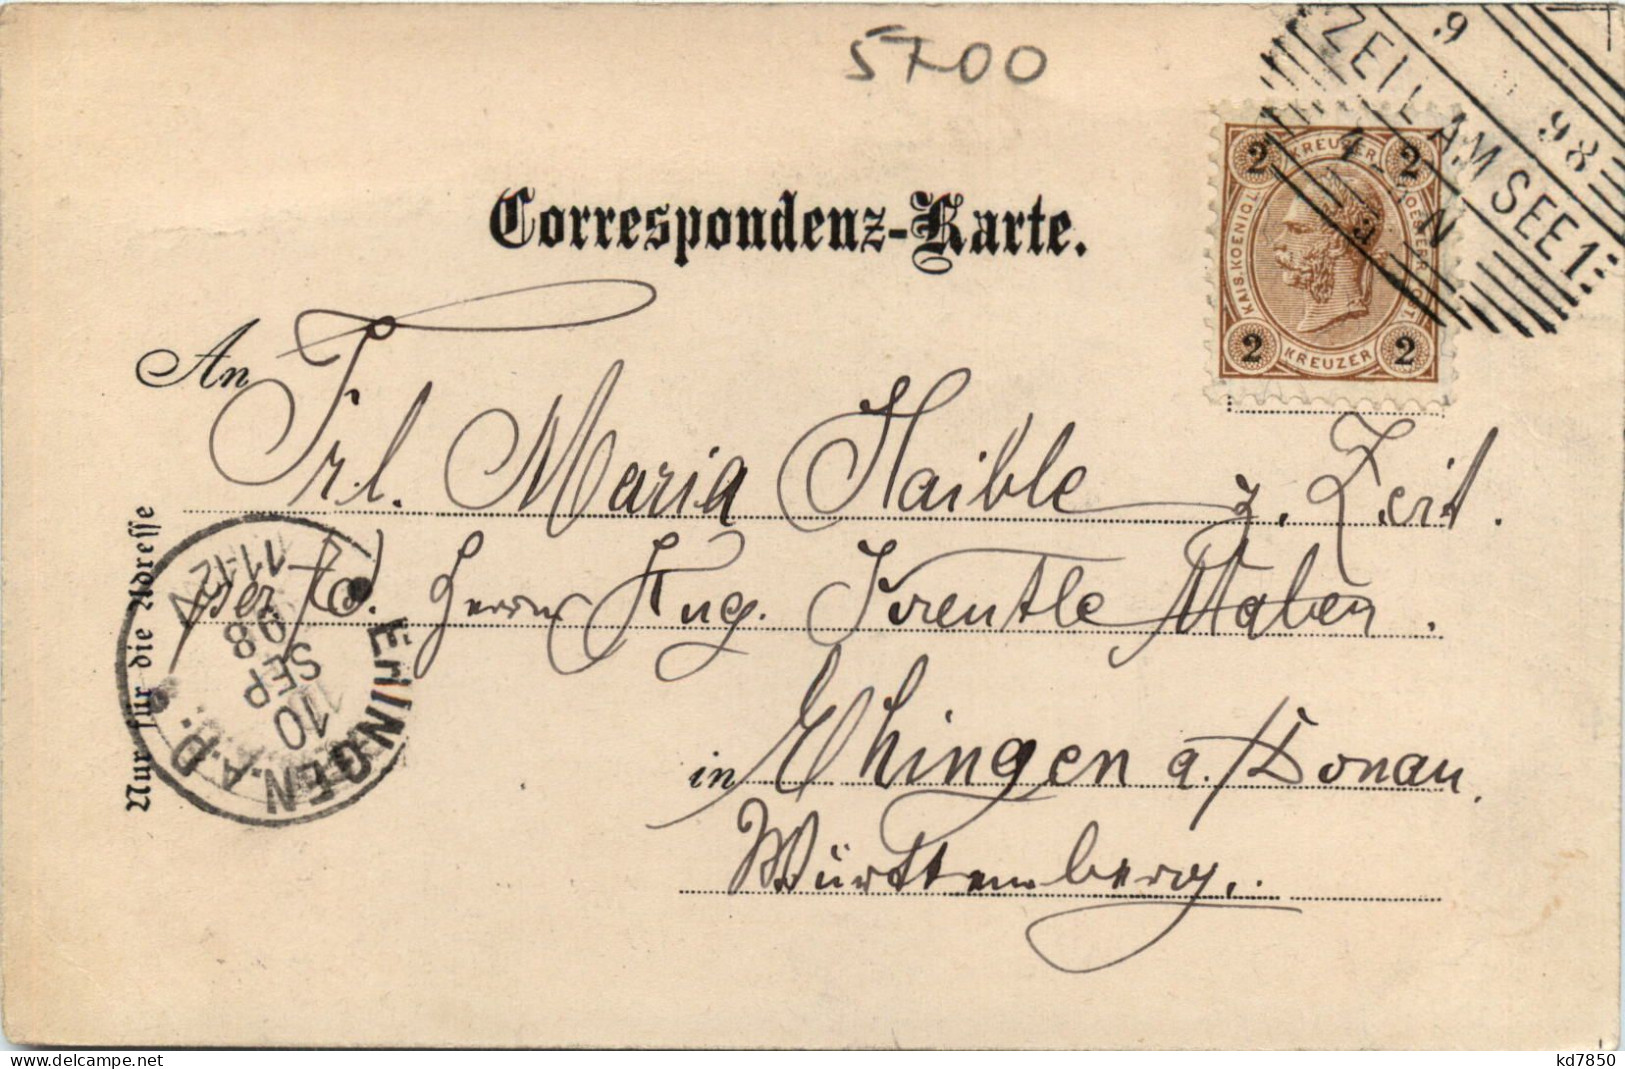 5700
ZELL AM SEE 1
9 9 98
4 N
2 KREUZER 2
KAIS. KOENIGL.
2 KREUZER 2
Correspondenz-Karte.
An Frl. Maria Haible z. Zeit.
per Ad. Herrn Aug. Krentle Maler.
in Ehingen a./Donau.
Württemberg.
Nur für die Adresse
EHINGEN A.D.
10 SEP 98
N 11-12
delcampe.net
kd7850